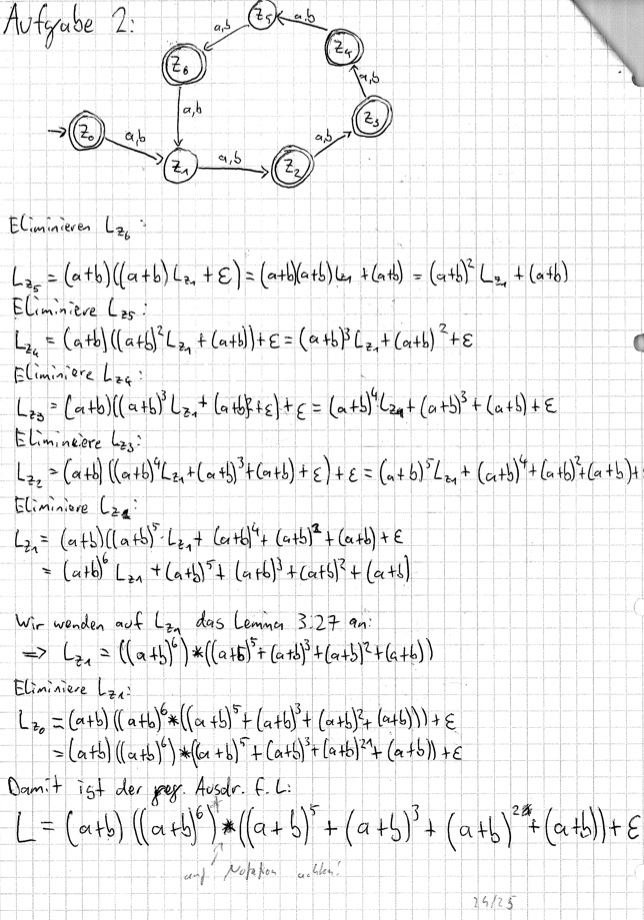 Aufgabe 2:
z₅
a,b
a,b
z₆
z₄
a,b
a,b
z₃
z₀
a,b
a,b
z₁
a,b
z₂
Eliminieren L_z₆:
L_z₅ = (a+b)((a+b) L_z₁ + ε) = (a+b)(a+b) L_z₁ + (a+b) = (a+b)² L_z₁ + (a+b)
Eliminiere L_z₅:
L_z₄ = (a+b)((a+b)² L_z₁ + (a+b)) + ε = (a+b)³ L_z₁ + (a+b)² + ε
Eliminiere L_z₄:
L_z₃ = (a+b)((a+b)³ L_z₁ + (a+b)² + ε) + ε = (a+b)⁴ L_z₁ + (a+b)³ + (a+b) + ε
Eliminiere L_z₃:
L_z₂ = (a+b)((a+b)⁴ L_z₁ + (a+b)³ + (a+b) + ε) + ε = (a+b)⁵ L_z₁ + (a+b)⁴ + (a+b)² + (a+b) +
Eliminiere L_z₂:
L_z₁ = (a+b)((a+b)⁵ · L_z₁ + (a+b)⁴ + (a+b)² + (a+b) + ε
= (a+b)⁶ L_z₁ + (a+b)⁵ + (a+b)³ + (a+b)² + (a+b)
Wir wenden auf L_z₁ das Lemma 3.27 an:
=> L_z₁ = ((a+b)⁶)*((a+b)⁵ + (a+b)³ + (a+b)² + (a+b))
Eliminiere L_z₁:
L_z₀ = (a+b)((a+b)⁶*((a+b)⁵ + (a+b)³ + (a+b)² + (a+b))) + ε
= (a+b)((a+b)⁶)*((a+b)⁵ + (a+b)³ + (a+b)² + (a+b)) + ε
Damit ist der reg. Ausdr. f. L:
L = (a+b)((a+b)⁶)*((a+b)⁵ + (a+b)³ + (a+b)² + (a+b)) + ε
auf Notation achten!
24/25